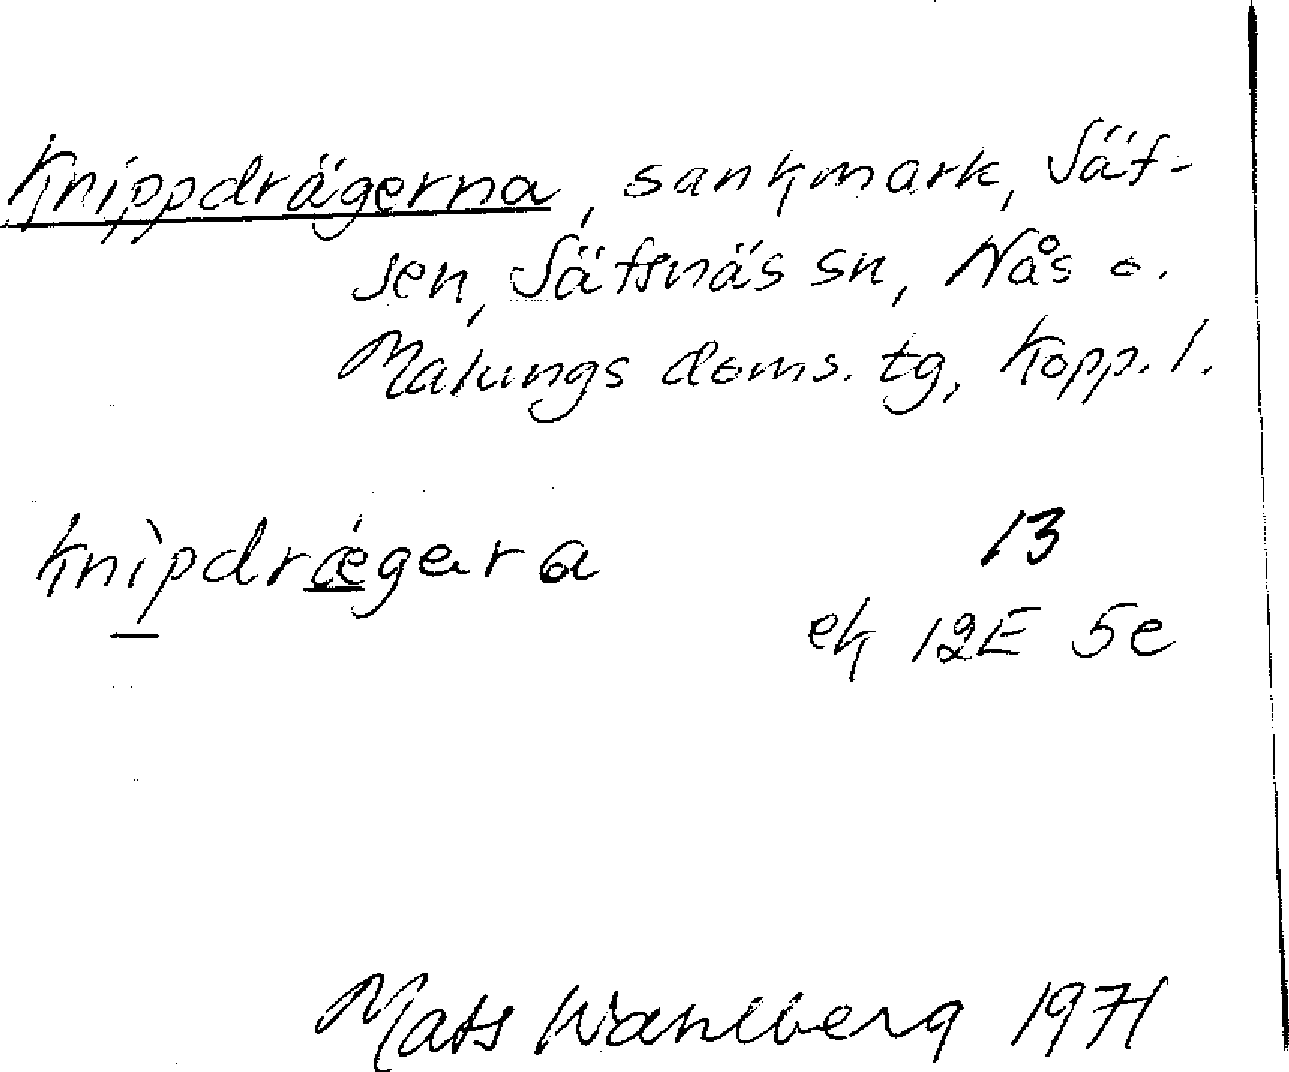 Knippdrägerna, sankmark, Säf-
sen, Säfsnäs sn, Nås o.
Malungs doms. tg, Kopp. l.
knìpdrǽgera 13
ek 12E 5e
Mats Wahlberg 1971